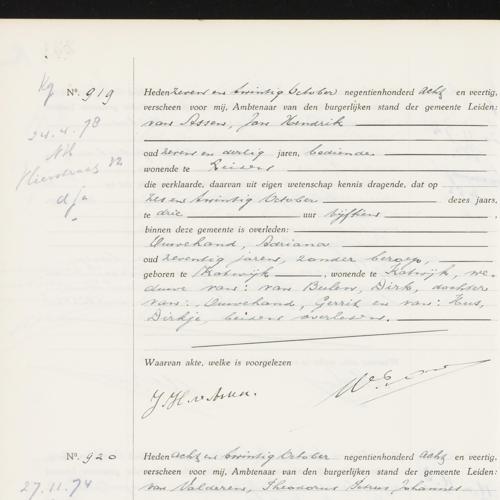 Nº. 919
Heden zeven en twintig October negentienhonderd acht en veertig,
verscheen voor mij, Ambtenaar van den burgerlijken stand der gemeente Leiden:
van Assen, Jan Hendrik
oud zeven en dertig jaren, bediende
wonende te Leiden
die verklaarde, daarvan uit eigen wetenschap kennis dragende, dat op
zes en twintig October dezes jaars,
te drie uur vijftien
binnen deze gemeente is overleden:
Ouwehand, Adriana
oud zeventig jaren, zonder beroep,
geboren te Katwijk, wonende te Katwijk, we-
duwe van: van Beelen, Dirk, dochter
van: Ouwehand, Gerrit en van:
Dirkje, beiden overleden.
Waarvan akte, welke is voorgelezen
J.H. v Assen.
24.4.78
Nº. 920
Heden acht en twintig October negentienhonderd acht en veertig,
verscheen voor mij, Ambtenaar van den burgerlijken stand der gemeente Leiden:
27.11.74
van Valderen, Theodorus Petrus Johannes